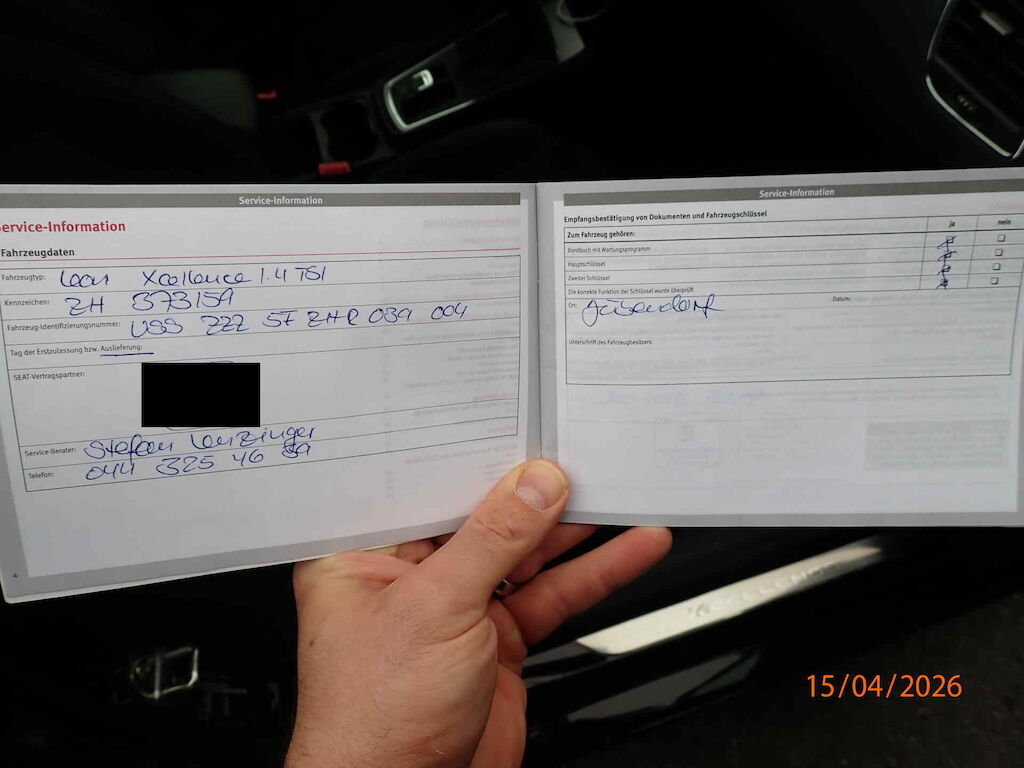 Service-Information
Service-Information
Fahrzeugdaten
Fahrzeugtyp: Leon Xcellence 1.4 TSI
Kennzeichen: ZH 873159
Fahrzeug-Identifizierungsnummer: VSS ZZZ 5F ZHR 039 004
Tag der Erstzulassung bzw. Auslieferung:
SEAT-Vertragspartner:
Service-Berater: Stefan
Telefon: 044 325 46
4
Service-Information
Empfangsbestätigung von Dokumenten und Fahrzeugschlüssel
Zum Fahrzeug gehören: ja nein
Bordbuch mit Wartungsprogramm
Hauptschlüssel
Zweiter Schlüssel
Die korrekte Funktion der Schlüssel wurde überprüft
Ort: Datum:
Unterschrift des Fahrzeugbesitzers:
XCELLENCE
15/04/2026